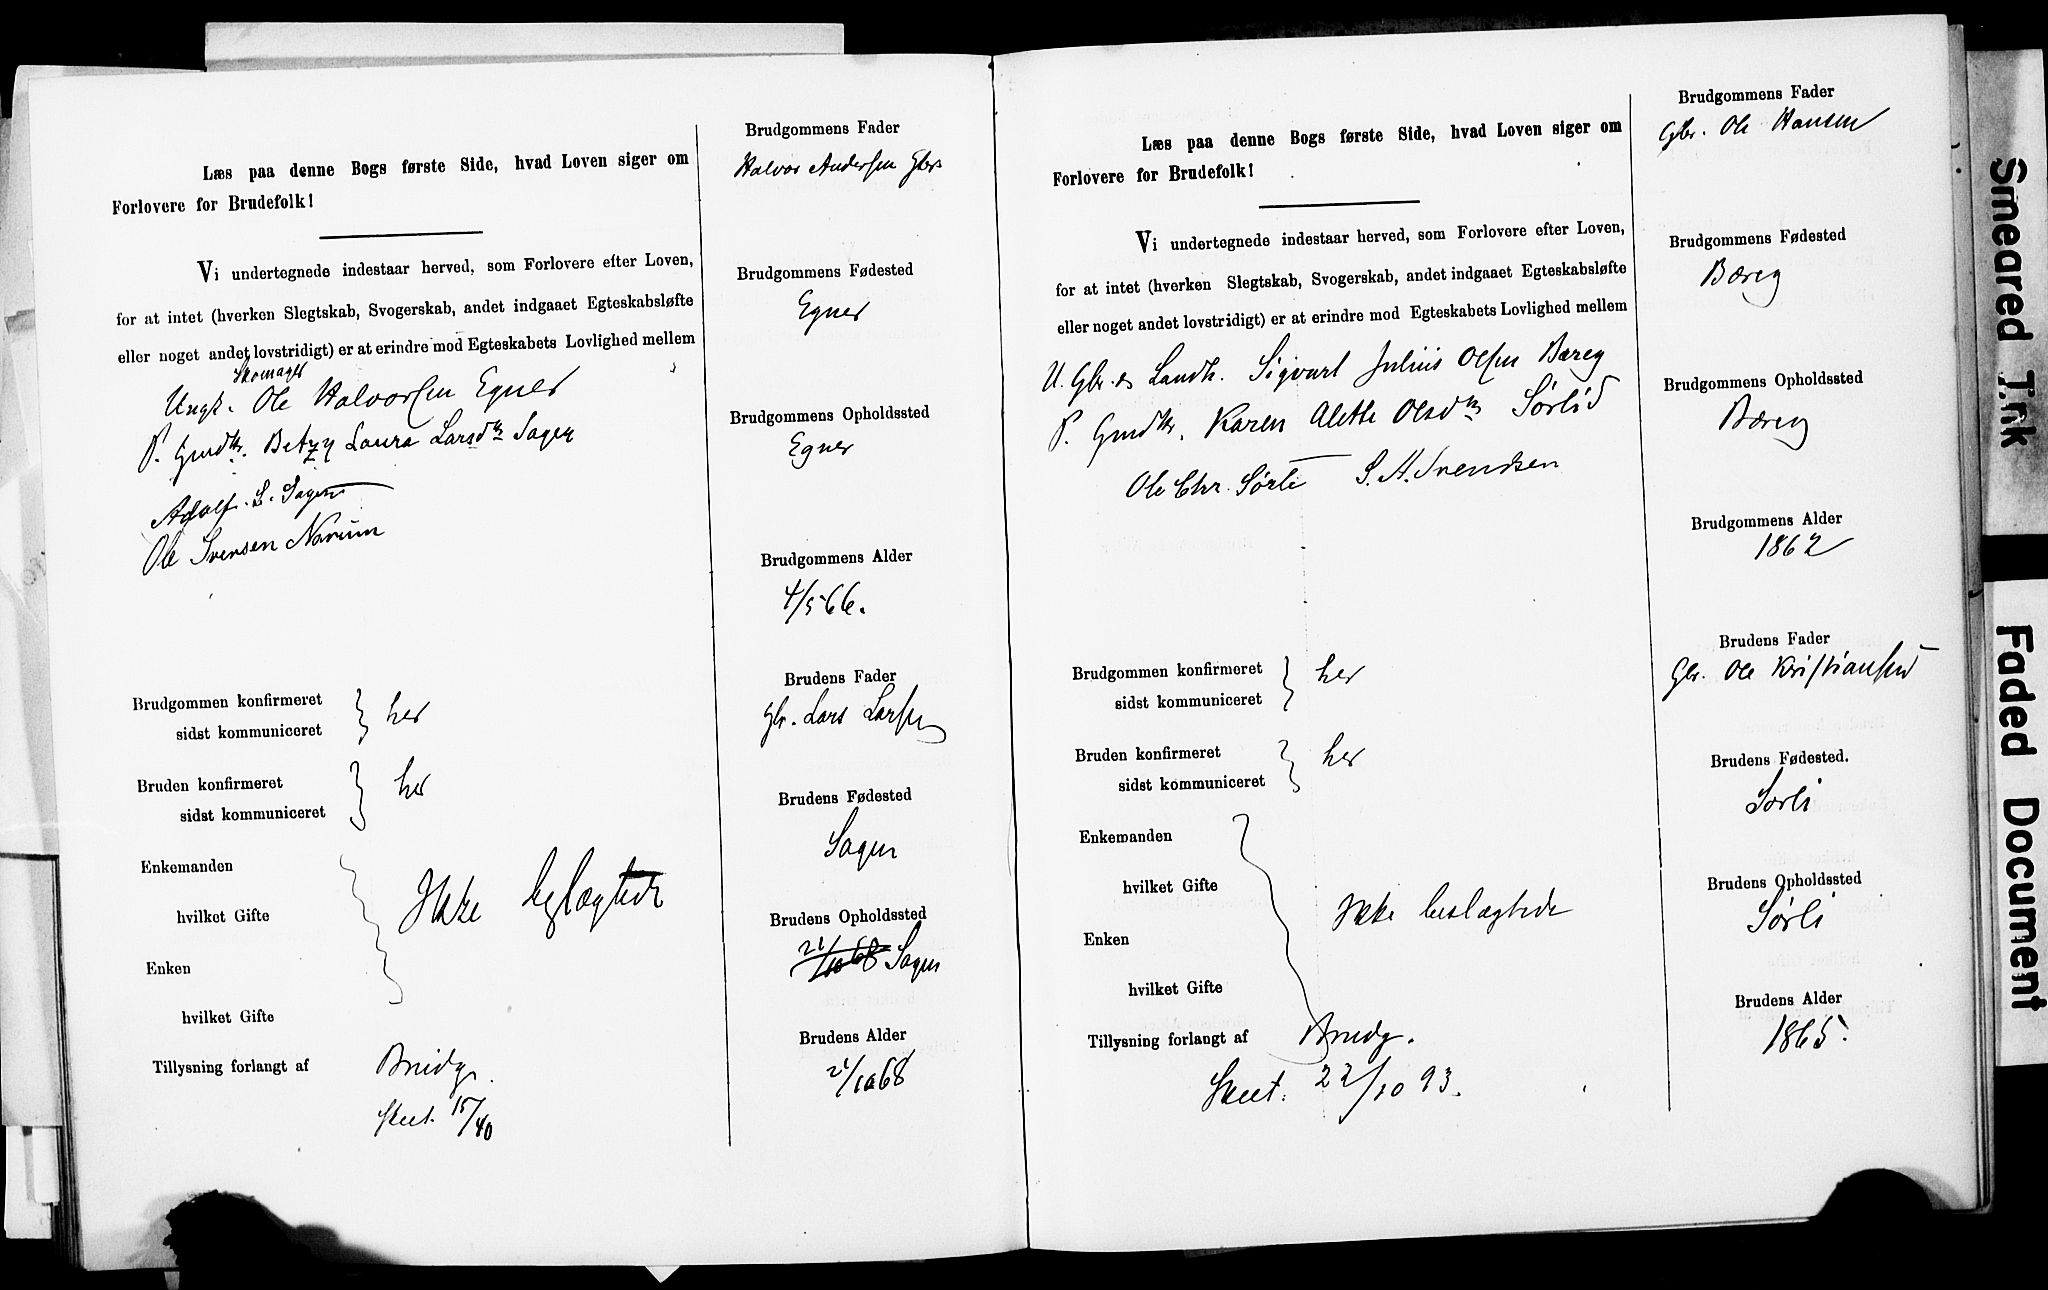 Læs paa denne Bogs første Side, hvad Loven siger om
Forlovere for Brudefolk!
Vi undertegnede indestaar herved, som Forlovere efter Loven,
for at intet (hverken Slegtskab, Svogerskab, andet indgaaet Egteskabsløfte
eller noget andet lovstridigt) er at erindre mod Egteskabets Lovlighed mellem
Skomager
Ungk. Ole Halvorsen Egner
P. Gmdtr. Betzy Laura Larsdtr Sagen
Adolf. L. Sagen
Ole Svensen Narum
Brudgommen konfirmeret
sidst kommuniceret
} her
Bruden konfirmeret
sidst kommuniceret
} her
Enkemanden
hvilket Gifte
Enken
hvilket Gifte
Ikke beslægtede
Tillysning forlangt af Brudg.
Skeet. 15/10
Brudgommens Fader
Halvor Andersen Gbr
Brudgommens Fødested
Egner
Brudgommens Opholdssted
Egner
Brudgommens Alder
4/5 66.
Brudens Fader
Gbr. Lars Larsen
Brudens Fødested
Sagen
Brudens Opholdssted
21/10 68 Sagen
Brudens Alder
21/10 68
Læs paa denne Bogs første Side, hvad Loven siger om
Forlovere for Brudefolk!
Vi undertegnede indestaar herved, som Forlovere efter Loven,
for at intet (hverken Slegtskab, Svogerskab, andet indgaaet Egteskabsløfte
eller noget andet lovstridigt) er at erindre mod Egteskabets Lovlighed mellem
U. Gbr. & Landh. Sigvart Julius Olsen Bæreg
P. Gmdtr. Karen Alette Olsdtr Sørlid
Ole Chr. Sørli S. A. Svendsen
Brudgommen konfirmeret
sidst kommuniceret
} her
Bruden konfirmeret
sidst kommuniceret
} her
Enkemanden
hvilket Gifte
Enken
hvilket Gifte
Ikke beslægtede
Tillysning forlangt af Brudg.
Skeet. 22/10 93.
Brudgommens Fader
Gbr. Ole Hansen
Brudgommens Fødested
Bæreg
Brudgommens Opholdssted
Bæreg
Brudgommens Alder
1862
Brudens Fader
Gbr. Ole Kristiansen
Brudens Fødested.
Sørli
Brudens Opholdssted
Sørli
Brudens Alder
1865.
Smeared Ink
Faded Document